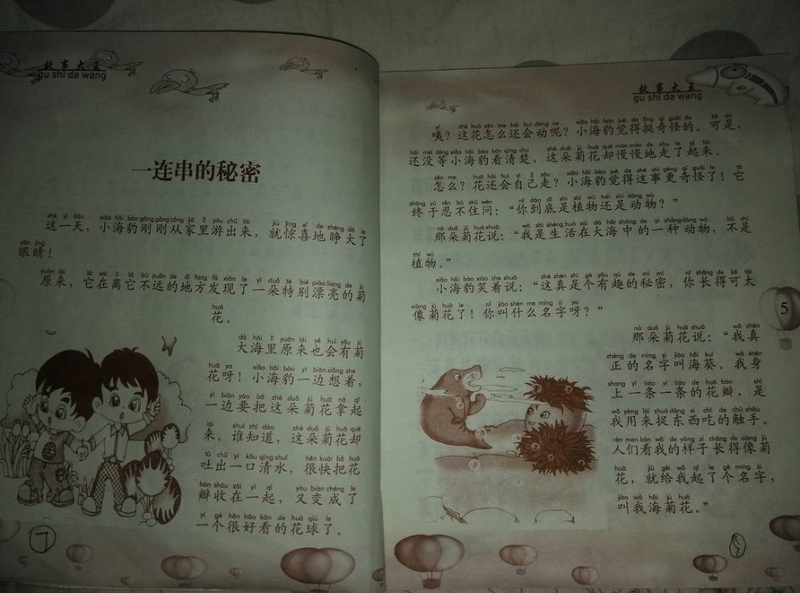 故事大王
gu shi da wang
一连串的秘密
这一天，小海豹刚刚从家里游出来，就惊喜地睁大了
眼睛！
原来，它在离它不远的地方发现了一朵特别漂亮的菊
花。
大海里原来也会有菊
花呀！小海豹一边想着，
一边要把这朵菊花拿起
来。谁知道，这朵菊花却
吐出一口清水，很快把花
瓣收在一起，又变成了
一个很好看的花球了。
故事大王
gu shi da wang
咦？这花怎么还会动呢？小海豹觉得挺奇怪的。可是，
还没等小海豹看清楚，这朵菊花却慢慢地走了起来。
怎么？花还会自己走？小海豹觉得这事更奇怪了！它
终于忍不住问：“你到底是植物还是动物？”
那朵菊花说：“我是生活在大海中的一种动物，不是
植物。”
小海豹笑着说：“这真是个有趣的秘密，你长得可太
像菊花了！你叫什么名字呀？”
那朵菊花说：“我真
正的名字叫海葵。我身
上一条一条的花瓣，是
我用来捉东西吃的触手。
人们看我的样子长得像菊
花，就给我起了个名字，
叫我海菊花。”
5